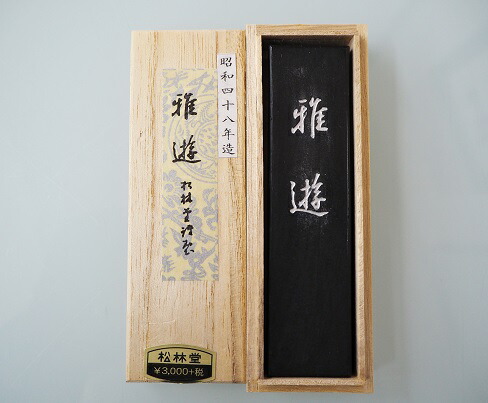 昭和四十八年造
雅遊
松林堂謹製
松林堂
¥3,000+税
雅遊